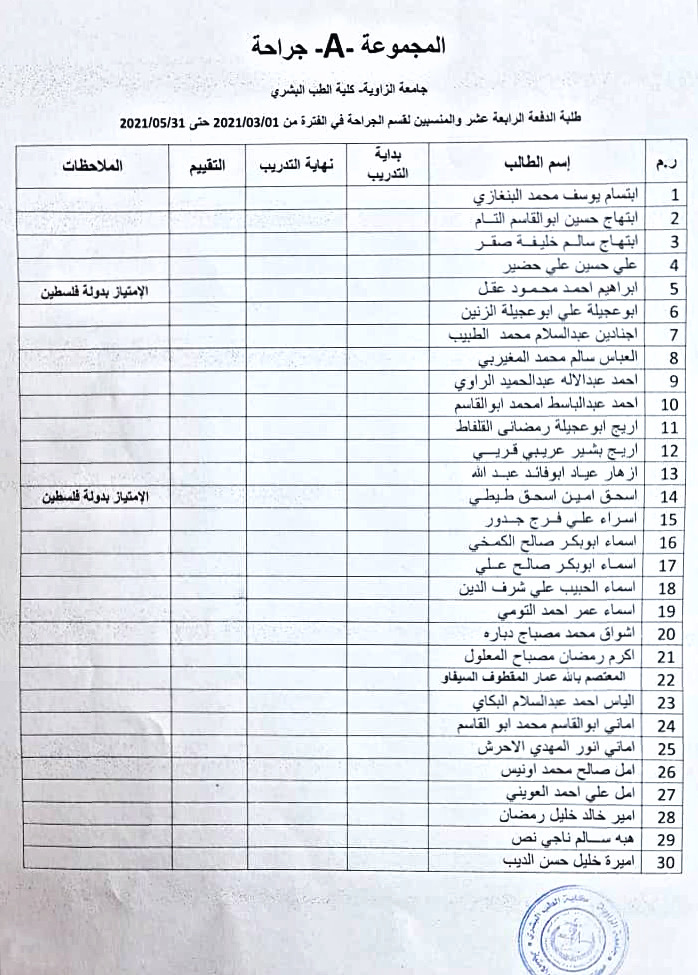 المجموعة -A- جراحة
جامعة الزاوية- كلية الطب البشري
طلبة الدفعة الرابعة عشر والمنسبين لقسم الجراحة في الفترة من 2021/03/01 حتى 2021/05/31
ر.م إسم الطالب بداية التدريب نهاية التدريب التقييم الملاحظات
1 ابتسام يوسف محمد البنغازي
2 ابتهاج حسين ابوالقاسم التام
3 ابتهاج سالم خليفة صقر
4 علي حسين علي حضير
5 ابراهيم احمد محمود عقل الإمتياز بدولة فلسطين
6 ابوعجيلة علي ابوعجيلة الزنين
7 اجنادين عبدالسلام محمد الطبيب
8 العباس سالم محمد المغيربي
9 احمد عبدالاله عبدالحميد الراوي
10 احمد عبدالباسط امحمد ابوالقاسم
11 اريج ابوعجيلة رمضانى القلفاط
12 اريج بشير عريبي قريبي
13 ازهار عياد ابوفائد عبد الله
14 اسحق امين اسحق طيطي الإمتياز بدولة فلسطين
15 اسراء علي فرج جدور
16 اسماء ابوبكر صالح الكمخي
17 اسماء ابوبكر صالح علي
18 اسماء الحبيب علي شرف الدين
19 اسماء عمر احمد التومي
20 اشواق محمد مصباح دباره
21 اكرم رمضان مصباح المعلول
22 المعتصم بالله عمار المقطوف السيفاو
23 الياس احمد عبدالسلام البكاي
24 اماني ابوالقاسم محمد ابو القاسم
25 اماني انور المهدي الاحرش
26 امل صالح محمد اونيس
27 امل علي احمد العويني
28 امير خالد خليل رمضان
29 هبه سالم ناجي نص
30 اميرة خليل حسن الديب
جامعة الزاوية - كلية الطب البشري